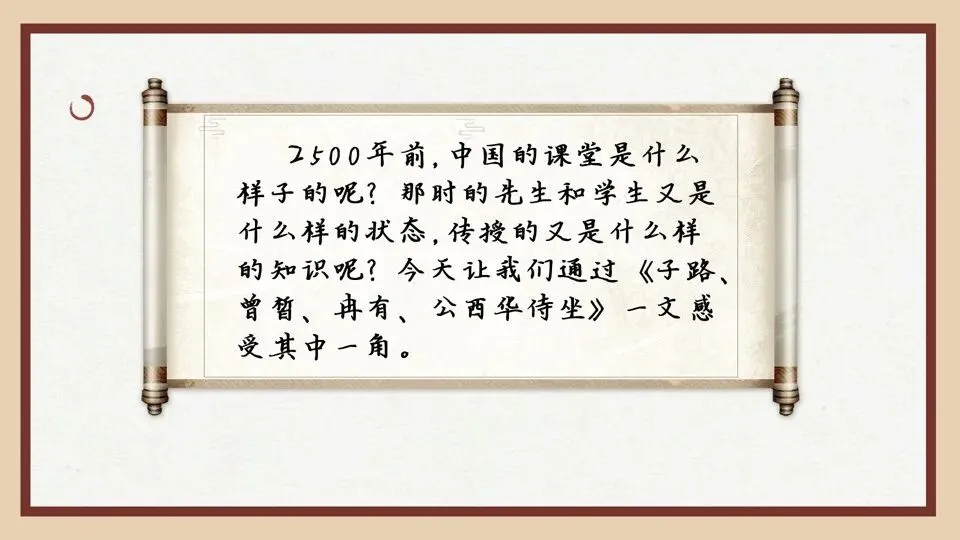 2500年前,中国的课堂是什么
样子的呢?那时的先生和学生又是
什么样的状态,传授的又是什么样
的知识呢?今天让我们通过《子路、
曾皙、冉有、公西华侍坐》一文感
受其中一角。